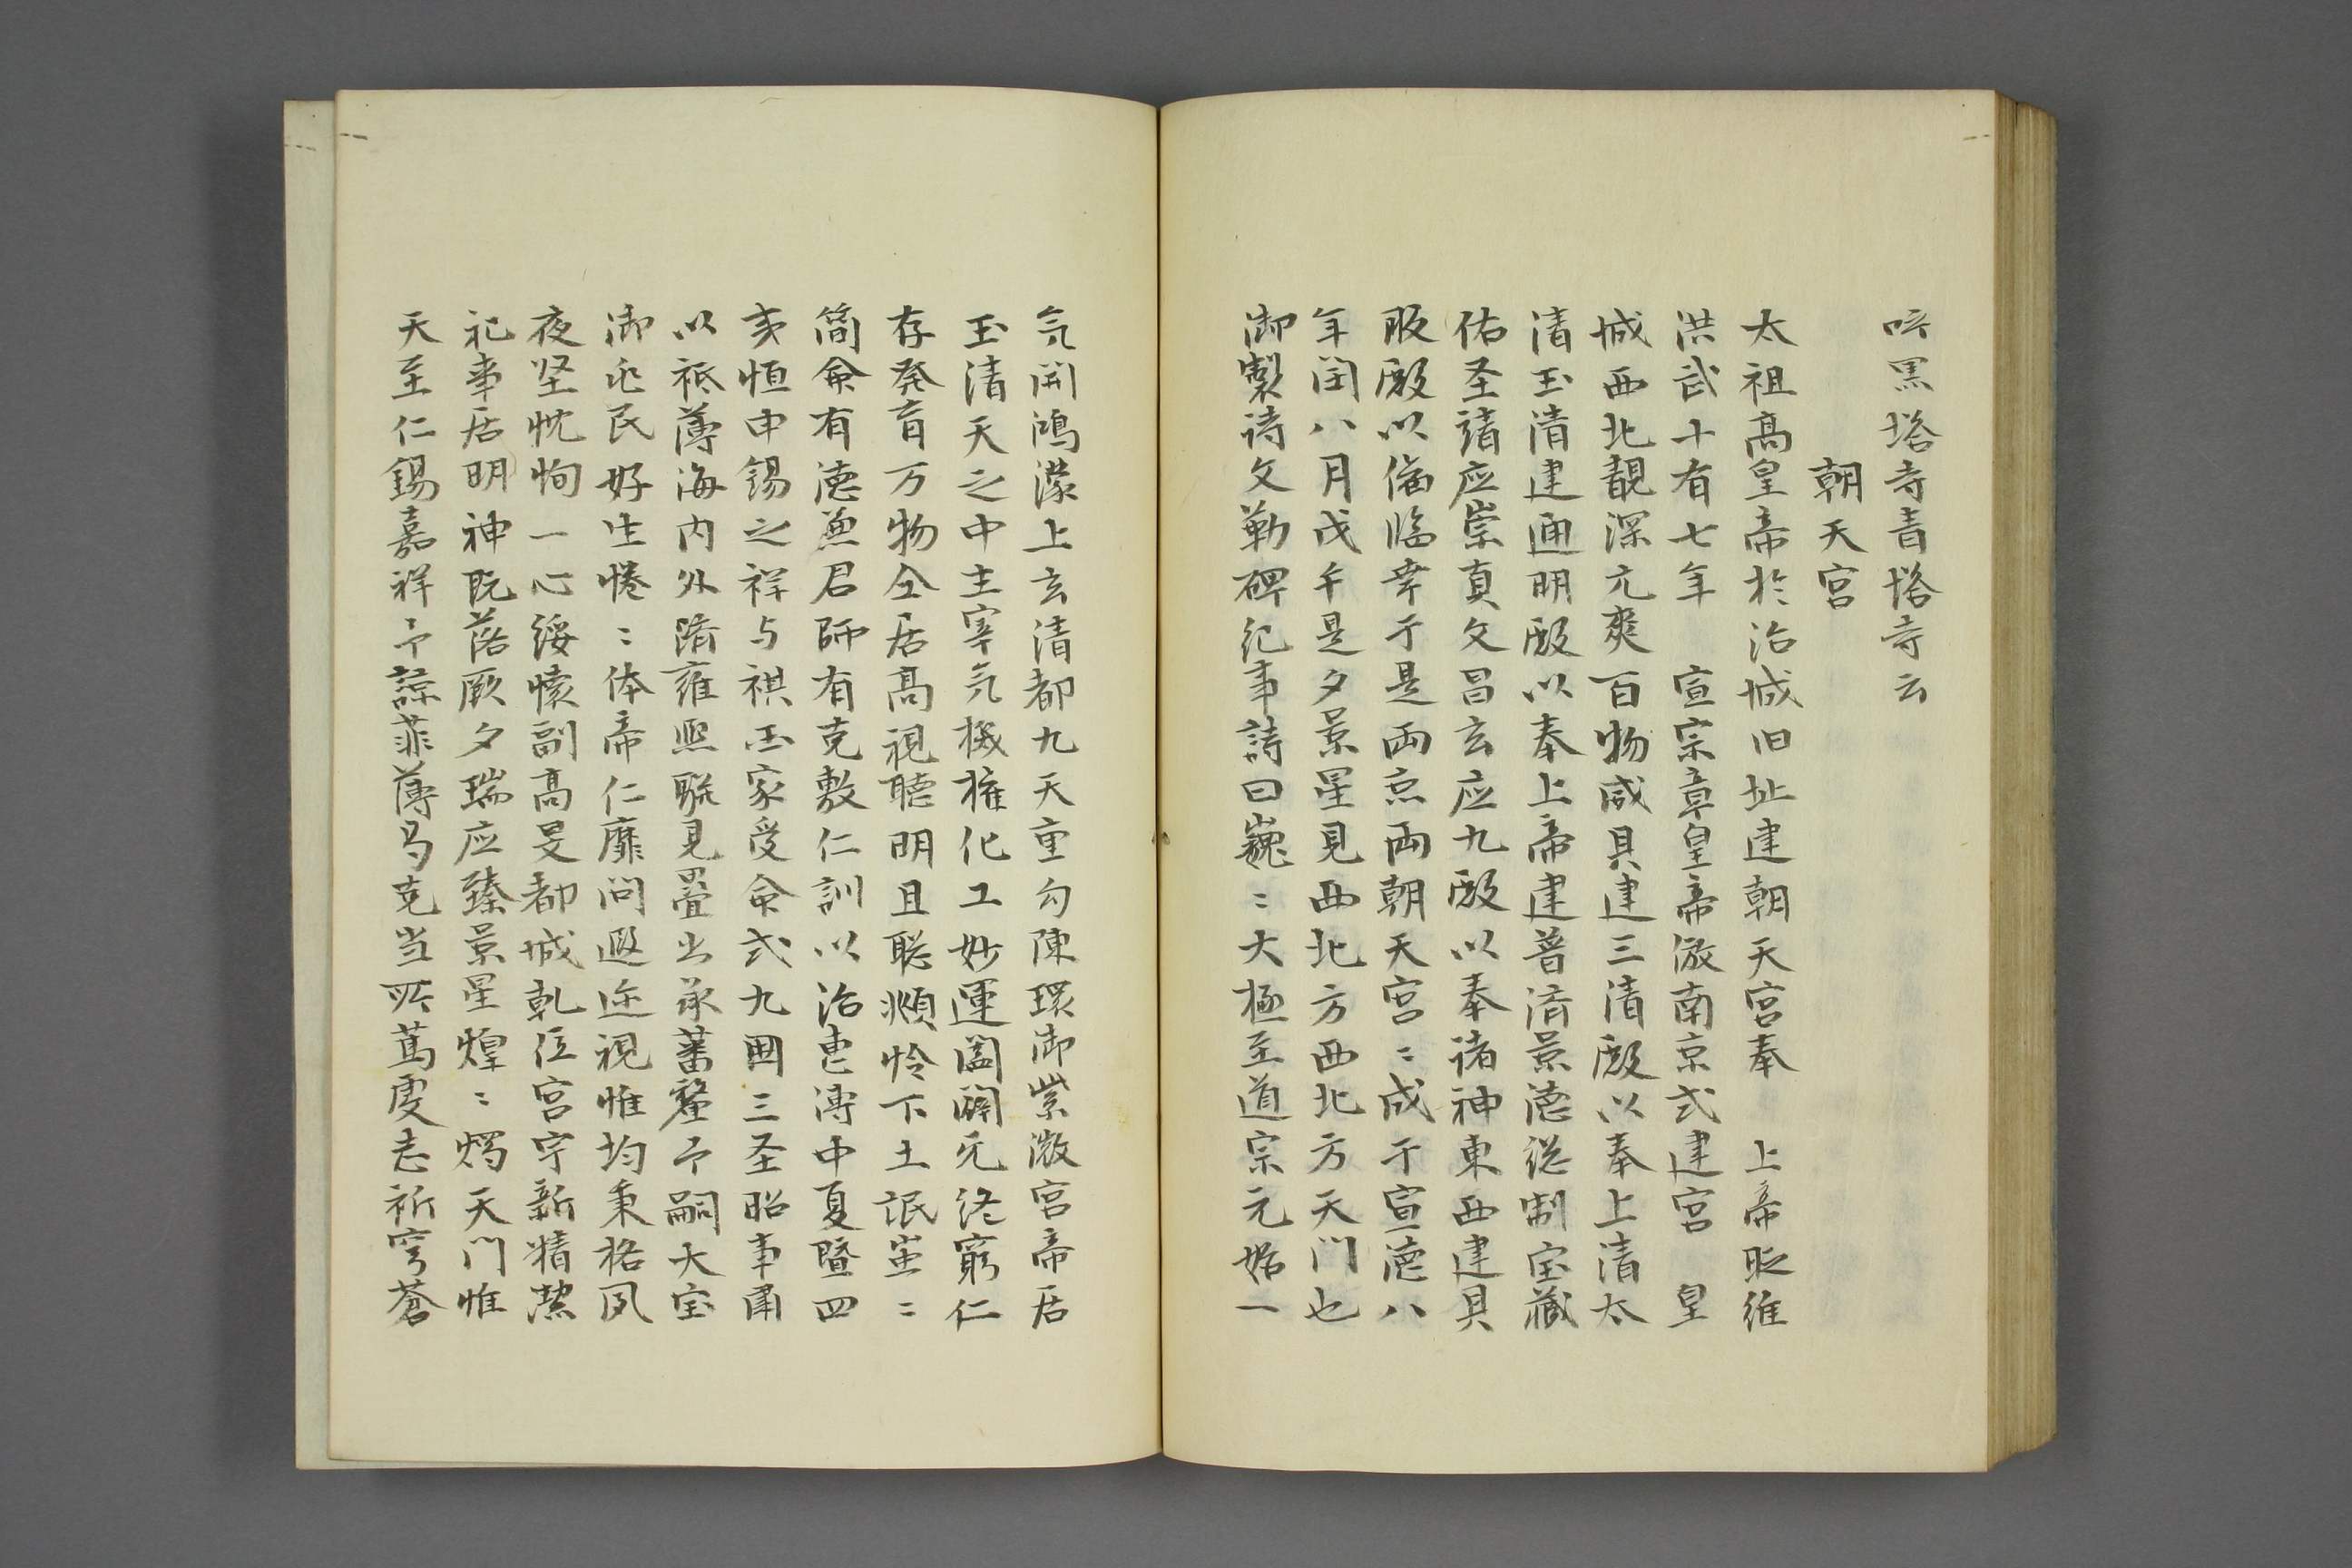 呼黒塔寺青塔寺云
朝天宮
太祖高皇帝於治城旧址建朝天宮奉 上帝貶維
洪武十有七年 宣宗章皇帝倣南京式建宮 皇
城西北覯深亢爽百物咸具建三清殿以奉上清太
清玉清建通明殿以奉上帝建普済景徳総制宝蔵
佑圣靖应崇真文昌玄应九殿以奉诸神東西建具
服殿以俻临幸于是両京両朝天宮〻成于宣徳八
年閏八月戊午是夕景星見西北方西北方天门也
御製诗文勒碑纪事詩曰巍〻大極至道宗元始一
気開鴻濛上玄清都九天重勾陳環御紫微宮帝居
玉清天之中主宰気機権化工妙運阖闢元泽窮仁
存発育万物仝居高視聴明且聡顺怜下土氓蚩〻
簡命有徳為君師有克敷仁訓以治曹溥中夏暨四
夷恒申錫之祥与祺国家受命式九囲三圣昭事肃
以祗薄海内外躋雍熙駢見畳出承蕃釐予嗣大宝
御兆民好生惓〻体帝仁靡问遐迩視惟均秉格夙
夜坚忱恂一心绥懷副高旻都城乹位宮宇新精潔
祀事居明神既落厥夕瑞应臻景星煌〻燭天门惟
天至仁錫嘉祥予諒菲薄曷克当所篤虔志祈穹蒼